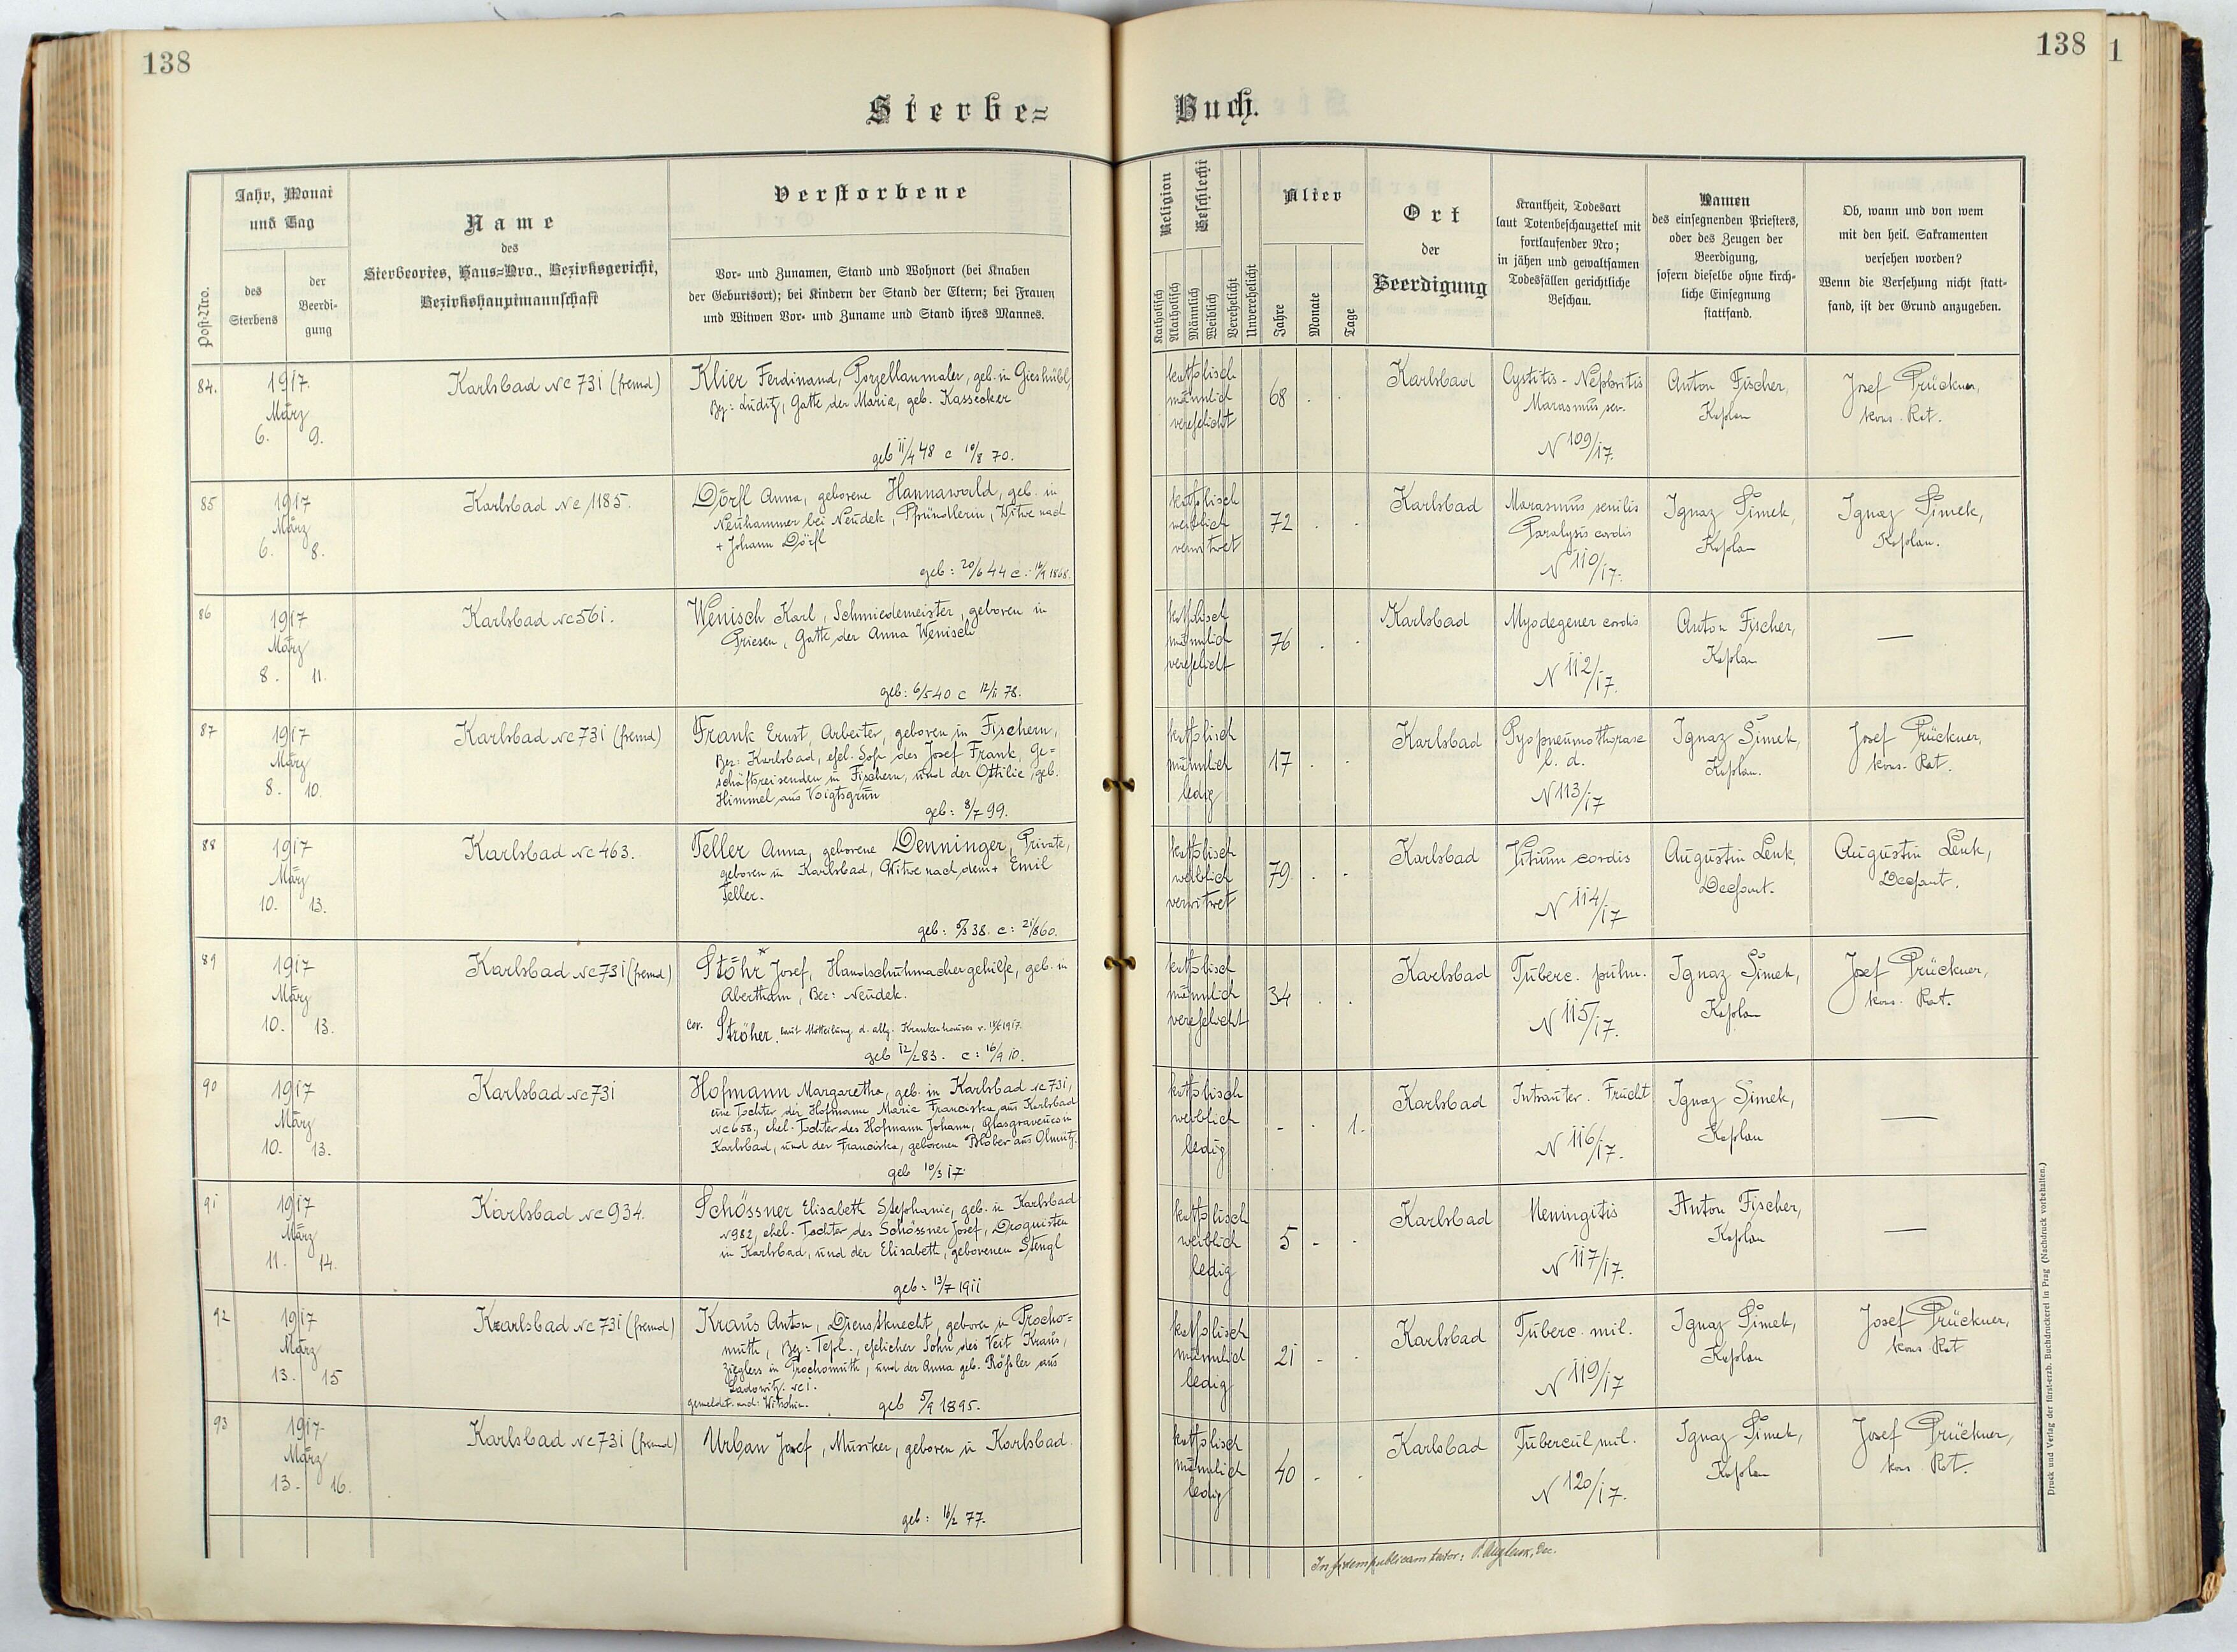 138
138
1
Sterbe=
Buch.
Post-Nro.
Jahr, Monat
und Tag
des
Sterbens
der
Beerdi-
gung
Name
des
Sterbeortes, Haus=Nro., Bezirksgericht,
Bezirkshauptmannschaft
Verstorbene
Vor- und Zunamen, Stand und Wohnort (bei Knaben
der Geburtsort); bei Kindern der Stand der Eltern; bei Frauen
und Witwen Vor- und Zuname und Stand ihres Mannes.
Religion
Katholisch
Akatholisch
Geschlecht
Männlich
Weiblich
Verehelicht
Unverehelicht
Alter
Jahre
Monate
Tage
Ort
der
Beerdigung
Krankheit, Todesart
laut Totenbeschauzettel mit
fortlaufender Nro;
in jähen und gewaltsamen
Todesfällen gerichtliche
Beschau.
Namen
des einsegnenden Priesters,
oder des Zeugen der
Beerdigung,
sofern dieselbe ohne kirch-
liche Einsegnung
stattfand.
Ob, wann und von wem
mit den heil. Sakramenten
versehen worden?
Wenn die Versehung nicht statt-
fand, ist der Grund anzugeben.
84.
1917.
März
6. 9.
Karlsbad Nc 731 (fremd)
Klier Ferdinand, Porzellanmaler, geb. in Gieshübl,
Bez: Luditz, Gatte der Maria, geb. Kassecker
geb 11/4 48 c 10/8 70.
katholisch
männlich
verehelicht
68 . .
Karlsbad
Cystitis - Nephritis
Marasmus sen.
N 109/17.
Anton Fischer,
Kaplan
Josef Prückner,
kons. Rat.
85
1917
März
6. 8.
Karlsbad Nc 1185.
Dörfl Anna, geborene Hannawald, geb. in
Neuhammer bei Neudek, Pfründlerin, Witwe nach
+ Johann Dörfl
geb: 20/6 44 c: 16/9 1868.
katholisch
weiblich
verwitwet
72 . .
Karlsbad
Marasmus senilis
Paralysis cordis
N 110/17.
Ignaz Šimek,
Kaplan
Ignaz Šimek,
Kaplan.
86
1917
März
8. 11.
Karlsbad Nc 561.
Wenisch Karl, Schmiedemeister, geboren in
Priesen, Gatte der Anna Wenisch
geb: 6/5 40 c 12/11 78.
katholisch
männlich
verehelicht
76 . .
Karlsbad
Myodegener cordis
N 112/17.
Anton Fischer,
Kaplan
—
87
1917
März
8. 10.
Karlsbad Nc 731 (fremd)
Frank Ernst, Arbeiter, geboren in Fischern,
Bez: Karlsbad, ehel. Sohn des Josef Frank, Ge=
schäftsreisenden in Fischern, und der Ottilie, geb.
Himmel aus Voigtsgrün
geb: 8/7 99.
katholisch
männlich
ledig
17 . .
Karlsbad
Pyopneumothorax
l. d.
N 113/17
Ignaz Šimek,
Kaplan.
Josef Prückner,
kons. Rat.
88
1917
März
10. 13.
Karlsbad Nc 463.
Teller Anna, geborene Denninger, Private,
geboren in Karlsbad, Witwe nach dem + Emil
Teller.
geb: 5/3 38. c: 21/8 60.
katholisch
weiblich
verwitwet
79 . .
Karlsbad
Vitium cordis
N 114/17
Augustin Lenk,
Dechant.
Augustin Lenk,
Dechant.
89
1917
März
10. 13.
Karlsbad Nc 731 (fremd)
Stöhr* Josef, Handschuhmachergehilfe, geb. in
Abertham, Bez: Neudek.
cor. Ströher, laut Mitteilung d. allg. Krankenhauses v. 1917.
geb 12/2 83. c: 16/9 10.
katholisch
männlich
verehelicht
34 . .
Karlsbad
Tuberc. pulm.
N 115/17.
Ignaz Šimek,
Kaplan
Josef Prückner,
kons. Rat.
90
1917
März
10. 13.
Karlsbad Nc 731
Hofmann Margaretha, geb. in Karlsbad Nc 731,
eine Tochter der Hofmann Marie Franciska, aus Karlsbad
Nc 658, ehel. Tochter des Hofmann Johann, Glasgraveurs in
Karlsbad, und der Franciska, geborenen Blober aus Olmütz.
geb 10/3 17.
katholisch
weiblich
ledig
- . 1.
Karlsbad
Intrauter. Frucht
N 116/17.
Ignaz Šimek,
Kaplan
—
91
1917
März
11. 14.
Karlsbad Nc 934.
Schössner Elisabeth Stephanie, geb. in Karlsbad
N 982, ehel. Tochter des Schössner Josef, Droguisten
in Karlsbad, und der Elisabeth, geborenen Stengl
geb: 13/7 1911
katholisch
weiblich
ledig
5 - .
Karlsbad
Meningitis
N 117/17.
Anton Fischer,
Kaplan
—
92
1917
März
13. 15
Karlsbad Nc 731 (fremd)
Kraus Anton, Dienstknecht, geboren in Procho=
muth, Bez: Tepl., ehelicher Sohn des Veit Kraus,
Zieglers in Prochomuth, und der Anna geb. Rößler aus
Ladowitz Nc 1.
gemeldet nach: Witschin. geb 5/9 1895.
katholisch
männlich
ledig
21 - .
Karlsbad
Tuberc. mil.
N 119/17
Ignaz Šimek,
Kaplan
Josef Prückner,
kons. Rat
93
1917.
März
13. 16.
Karlsbad Nc 731 (fremd)
Urban Josef, Musiker, geboren in Karlsbad.
geb: 16/2 77.
katholisch
männlich
ledig
40 - .
Karlsbad
Tubercul. mil.
N 120/17.
Ignaz Šimek,
Kaplan
Josef Prückner,
kons. Rat.
In fidem publicam testor: P. Aug Lenk, Dec.
Druck und Verlag der fürst-erzb. Buchdruckerei in Prag (Nachdruck vorbehalten.)